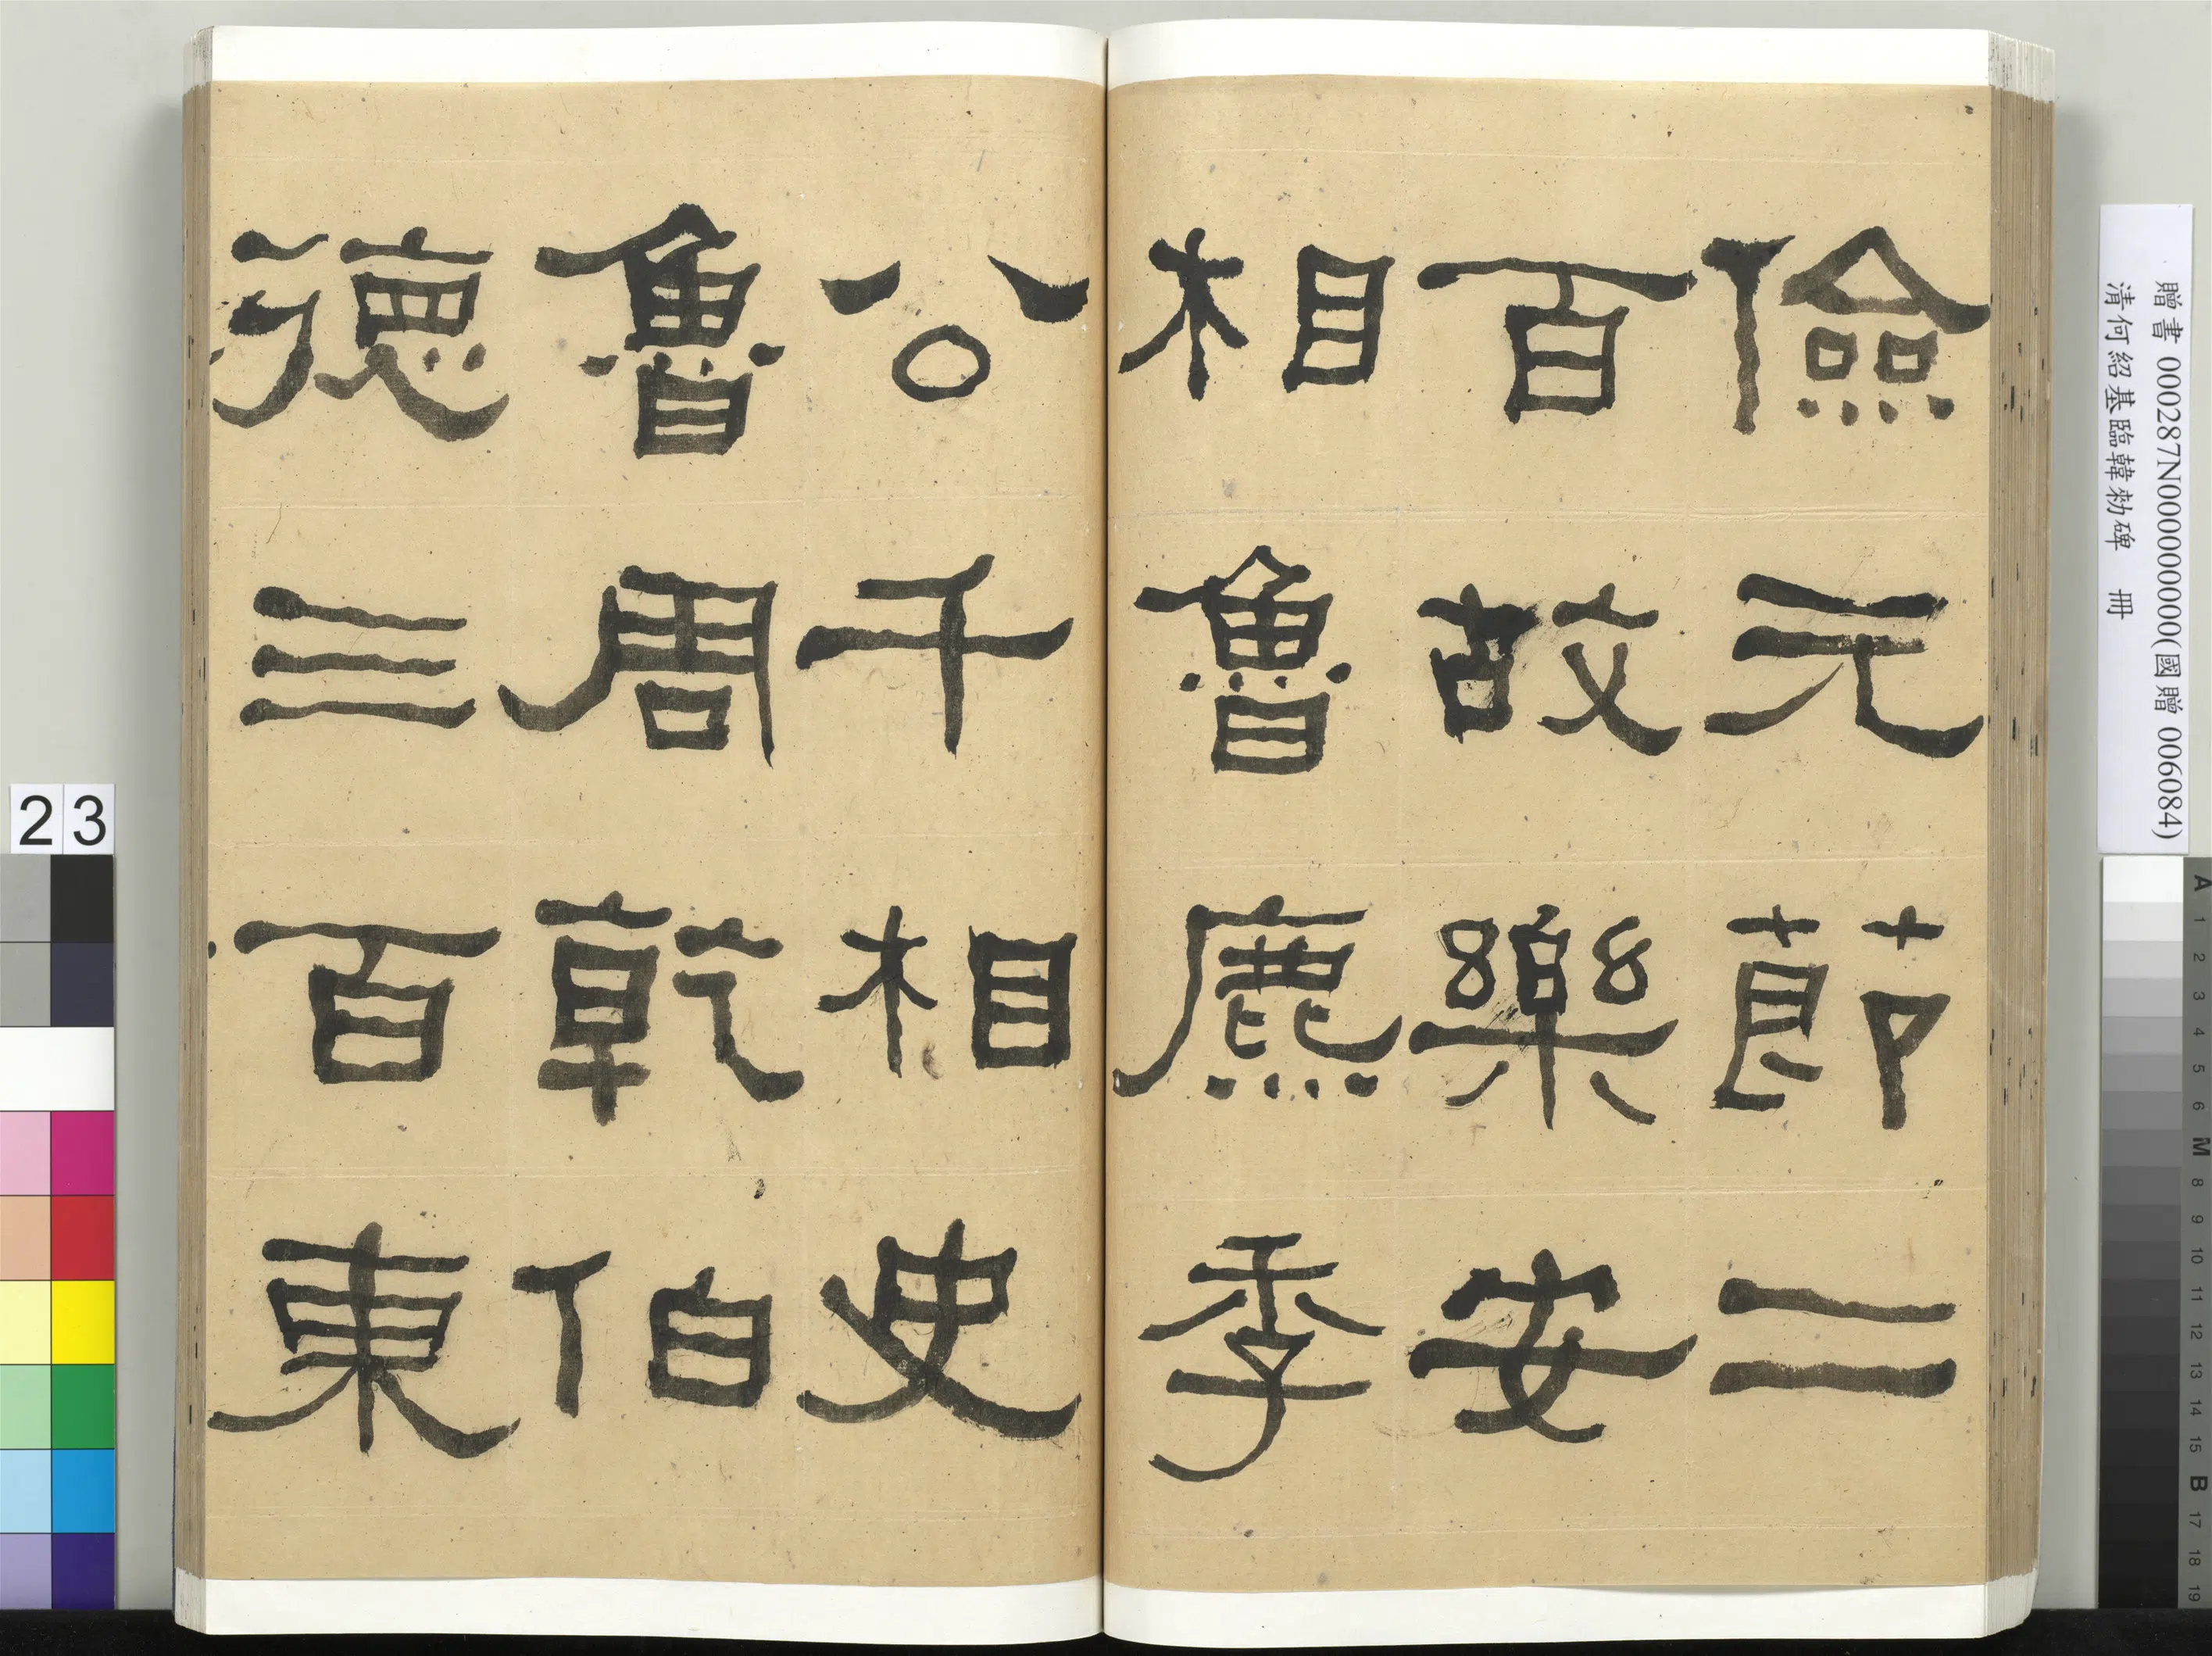 儉元節二
百故樂安
相魯麃季
公千相史
魯周乾伯
德三百東
贈書 000287N000000000(國贈 006084)
清何紹基臨韓勑碑 冊
23
A 1 2 3 4 5 6 M 8 9 10 11 12 13 14 15 B 17 18 19